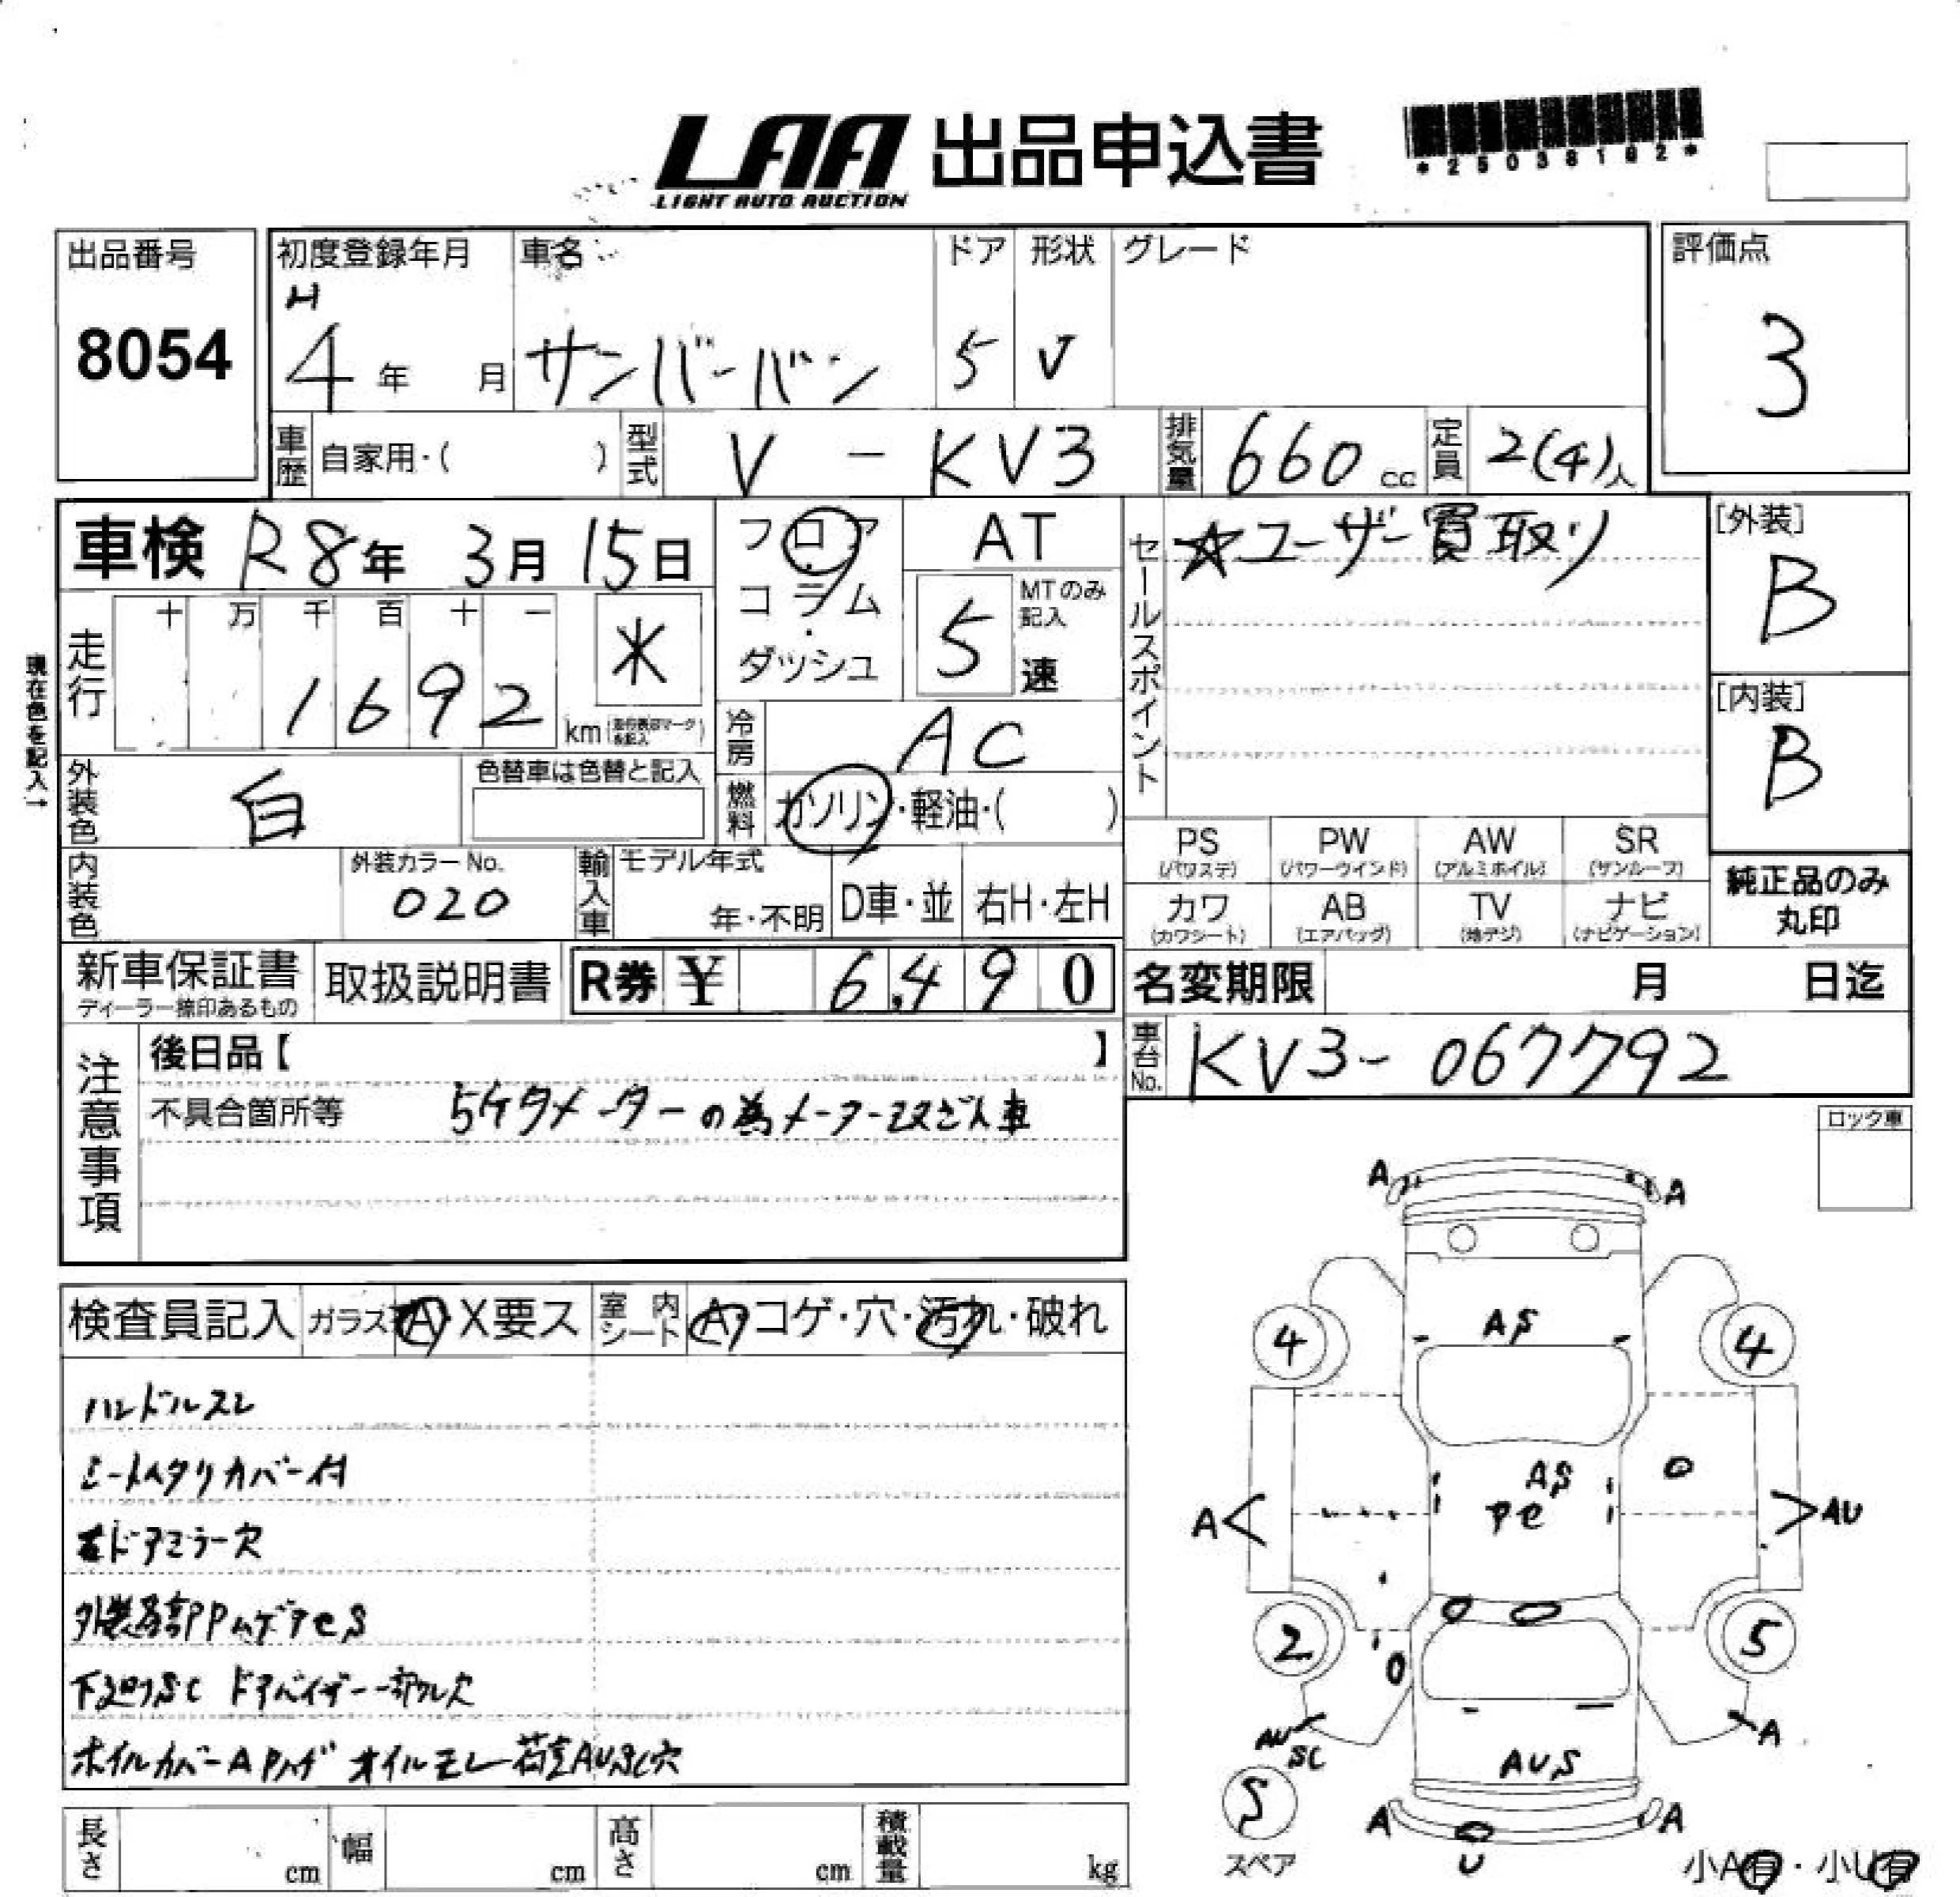 LAA 出品申込書
LIGHT AUTO AUCTION
*25038192*
出品番号
8054
初度登録年月
H
4年 月
車名
サンバーバン
ドア
5
形状
V
グレード
評価点
3
車歴
自家用・( )
型式
V - KV3
排気量
660 cc
定員
2(4)人
車検 R8年 3月 15日
フロア
・
コラム
・
ダッシュ
AT
5
MTのみ記入
速
セールスポイント
☆ユーザー買取り
[外装]
B
[内装]
B
現在色を記入→
走行
十 万 千 百 十 一
1 6 9 2
km
*
冷房
AC
燃料
ガソリン・軽油・( )
外装色
白
色替車は色替と記入
内装色
外装カラーNo.
020
輸入車
モデル年式
年・不明
D車・並
右H・左H
PS
(パワステ)
PW
(パワーウインド)
AW
(アルミホイル)
SR
(サンルーフ)
カワ
(カワシート)
AB
(エアバッグ)
TV
(地デジ)
ナビ
(ナビゲーション)
純正品のみ
丸印
新車保証書
ディーラー捺印あるもの
取扱説明書
R券 ¥ 6,490
名変期限 月 日迄
車台No.
KV3-067792
注意事項
後日品【 】
不具合箇所等 5ケタメーターの為メーター改ざん車
ロック車
検査員記入
ガラス
A・X要ス
室内シート
A・コゲ・穴・汚れ・破れ
ハンドルスレ
シートヘタリカバー付
右ドアミラー欠
外装各部PPハゲPeS
下廻りSC ドアバイザー一部ワレ欠
ホイルカバーAPハゲ オイルモレ 荷室AUSC穴
長さ cm
幅 cm
高さ cm
積載量 kg
A A
AS
4 4
AS
Pe
A AU
2 5
AU
SC
A
AUS
S
スペア
A A
U
小A有・小U有